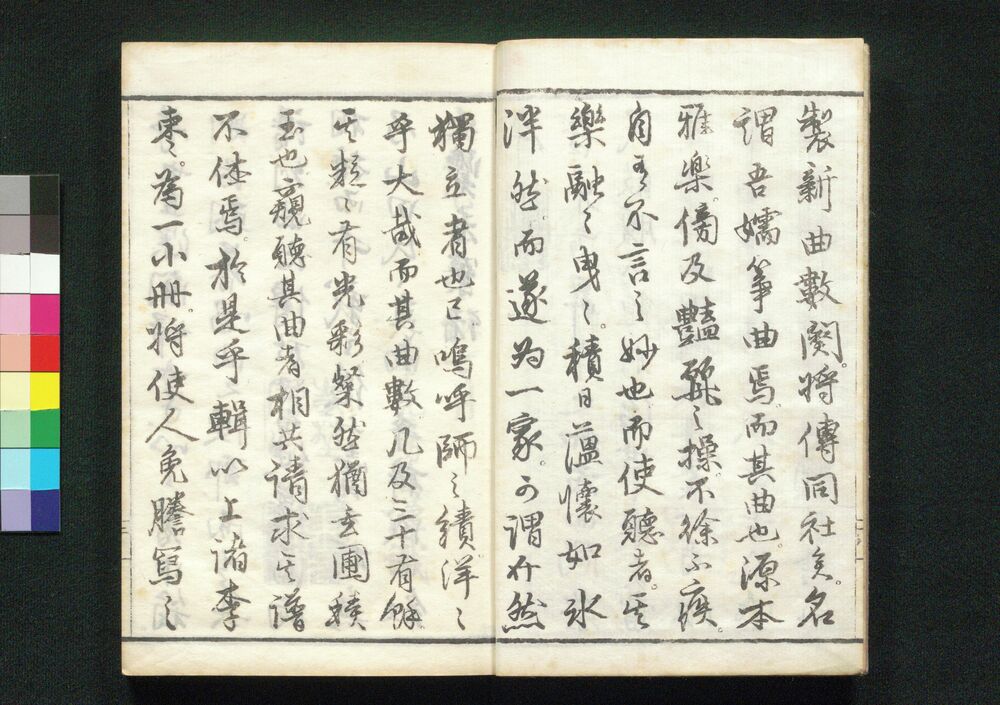 製新曲數闋。将傳同社矣。名
謂吾嬬箏曲焉。而其曲也。源本
雅樂。傍及豔麗之操。不徐不疾。
自有不言之妙也。而使聽者。其
樂融〻曳〻。積日薀懷如氷
泮然。而遂为一家。可謂介然
獨立者也已。嗚呼師之績洋〻
乎大哉。而其曲數。凡及三十有餘。
其粒〻有光彩。粲然猶玄圃積
玉也。聽其曲者。相共請求其譜
不休焉。於是乎輯以上諸李
棗。為一小冊。将使人免謄寫之